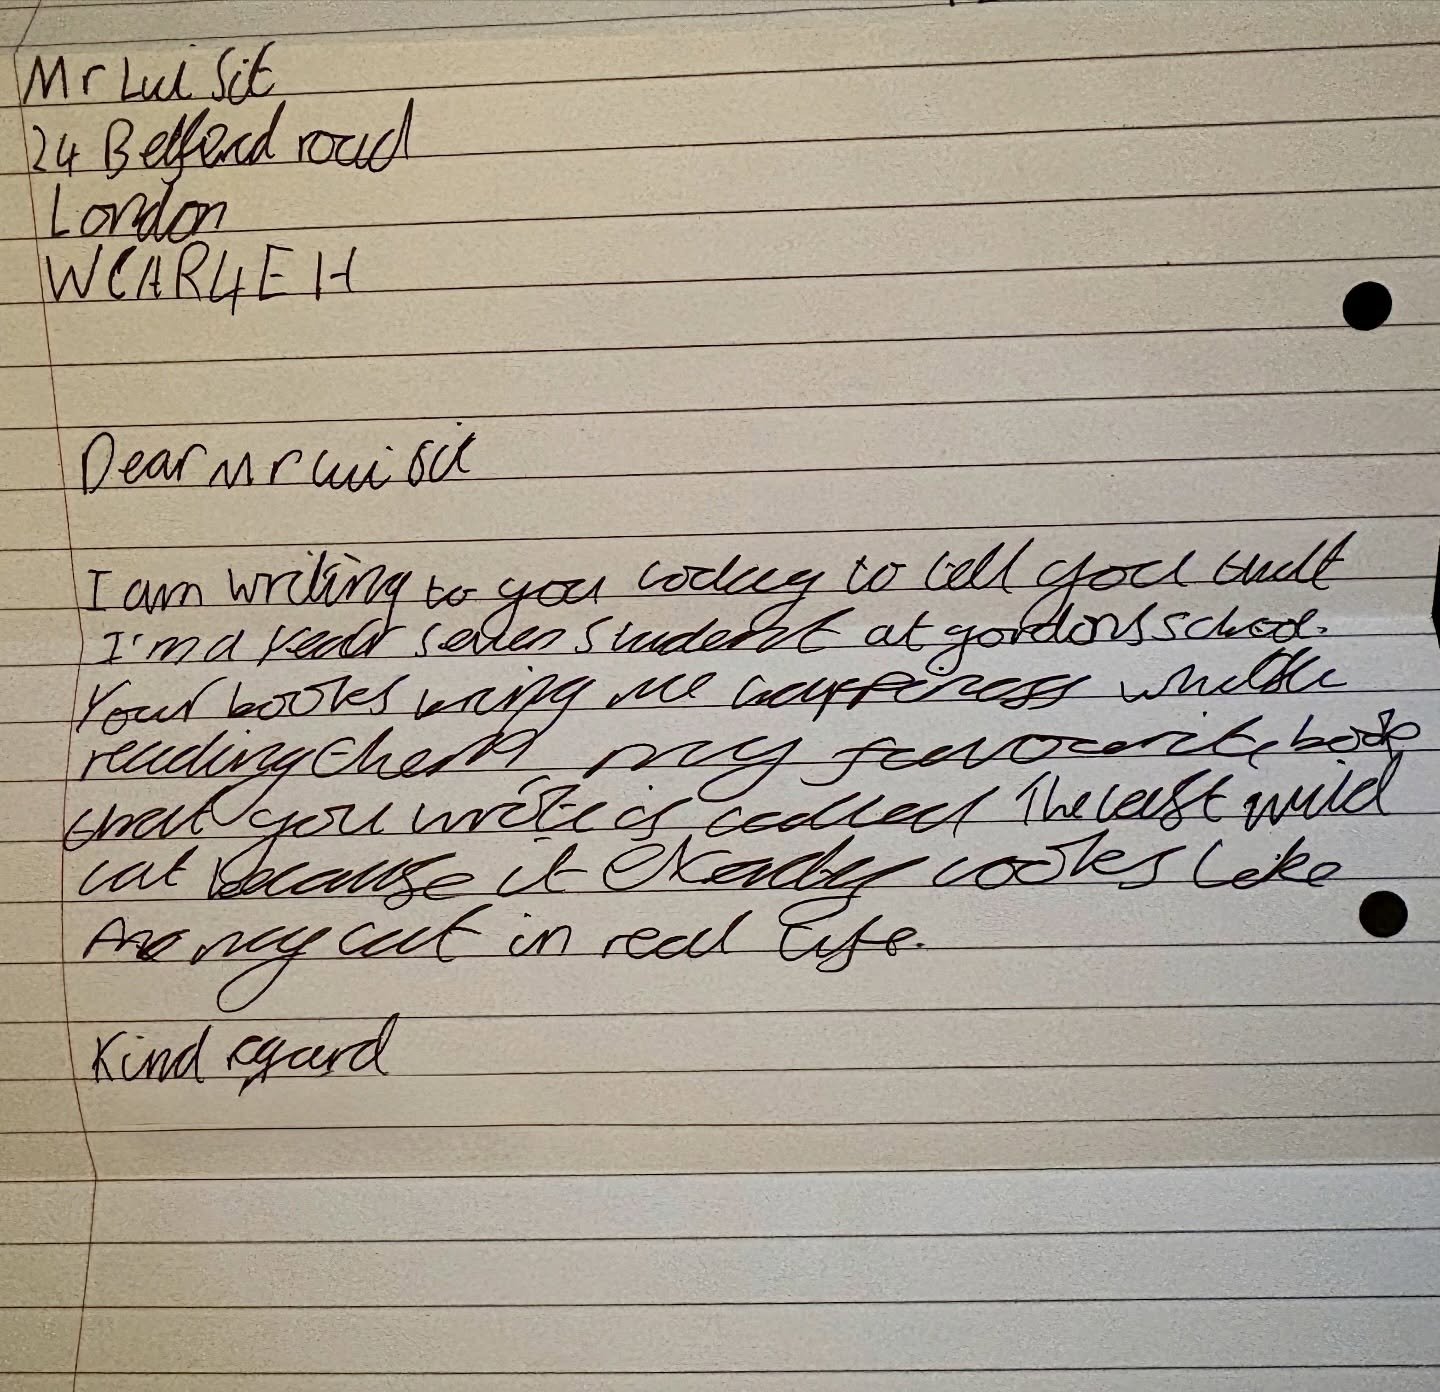 Mr Lui Sit
24 Belford road
London
WCAR4EH
Dear Mr Lui Sit
I am writing to you today to tell you that
I'm a Year seven student at gordons school.
Your books bring me happiness while
reading them my favourite book
that you write is called The last wild
cat because it exactly looks like
my cat in real life.
Kind regard